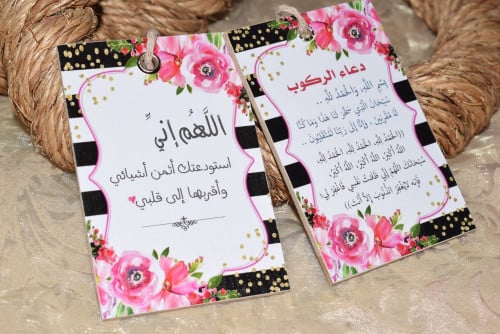 اللَّهُم إنيِّ
استودعتك أثمن أشيائي
وأقربها إلى قلبي
دعاء الركوب
بِسْمِ اللَّهِ وَالْحَمْدُ لِلَّهِ ..
سُبْحَانَ الَّذِي سَخَّرَ لَنَا هَذَا وَمَا كُنَّا
لَهُ مُقْرِنِينَ . وَإِنَّا إِلَى رَبِّنَا لَمُنْقَلِبُونَ ..
((الْحَمْدُ لِلَّهِ، الْحَمْدُ لِلَّهِ، الْحَمْدُ لِلَّهِ،
اللَّهُ أَكْبَرُ، اللَّهُ أَكْبَرُ، اللَّهُ أَكْبَرُ،
سُبْحَانَكَ اللَّهُمَّ إِنِّي ظَلَمْتُ نَفْسِي فَاغْفِرْ لِي؛
فَإِنَّهُ لَا يَغْفِرُ الذُّنُوبَ إِلاَّ أَنْتَ))